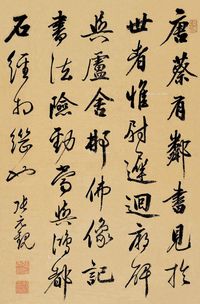 唐蔡有鄰書見於
世者惟尉遲迴廟碑
與盧舍那佛像記
書法險勁當與鴻都
石經相繼